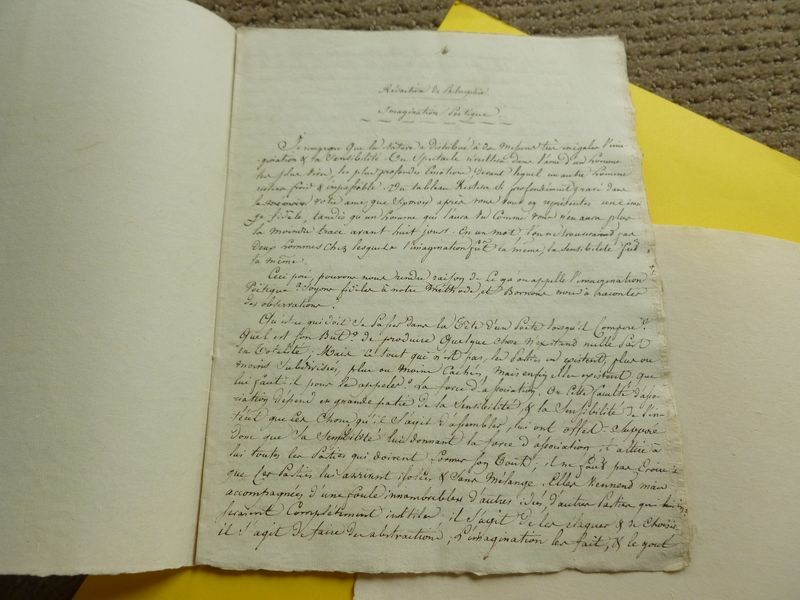 Rédaction de Philosophie
Imagination Poëtique.
Je remarque que la nature a distribué à des mesures très inégales l'ima-
gination & la Sensibilité. Un Spectacle réveillera dans l'ame d'un homme
les plus vives, les plus profondes émotions devant lequel un autre homme
restera froid & impassible. Un tableau restera si profondément gravé dans
votre ame, que dix mois après vous vous en représentez une ima-
ge fidèle, tandis qu'un homme qui l'aura vu comme vous n'en aura plus
la moindre trace avant huit jours. En un mot l'on ne trouverait pas
deux hommes chez lesquels l'imagination fût la même, la sensibilité fût
la même.
Ceci posé, pouvons nous rendre raison de ce qu'on appelle l'imagination
Poëtique? Soyons fidèles à notre méthode, et bornons nous à raconter
des observations.
Qu'est ce qui doit se passer dans la tête d'un Poëte lorsqu'il compose?
Quel est son but? de produire quelque chose n'existant nulle part
en totalité; Mais ce tout qui n'est pas, les parties en existent, plus ou
moins subdivisées, plus ou moins cachées, mais enfin elles existent. que
lui faut-il pour les appeler? La force d'association. Or cette faculté d'asso-
ciation dépend en grande partie de la Sensibilité, & la Sensibilité de l'in-
térêt que les choses qu'il s'agit d'assembler, lui ont offert. Supposé
donc que sa sensibilité lui donnant la force d'association, il allie à
lui toutes les parties qui doivent former son tout; il ne faut pas croire
que ces parties lui arrivent isolées & sans mélange. Elles viennent
accompagnées d'une foule innombrable d'autres idées, d'autres parties qui lui
seraient complètement inutiles. il s'agit de les élaguer & de choisir
il s'agit de faire des abstractions, l'imagination les fait, & le goût